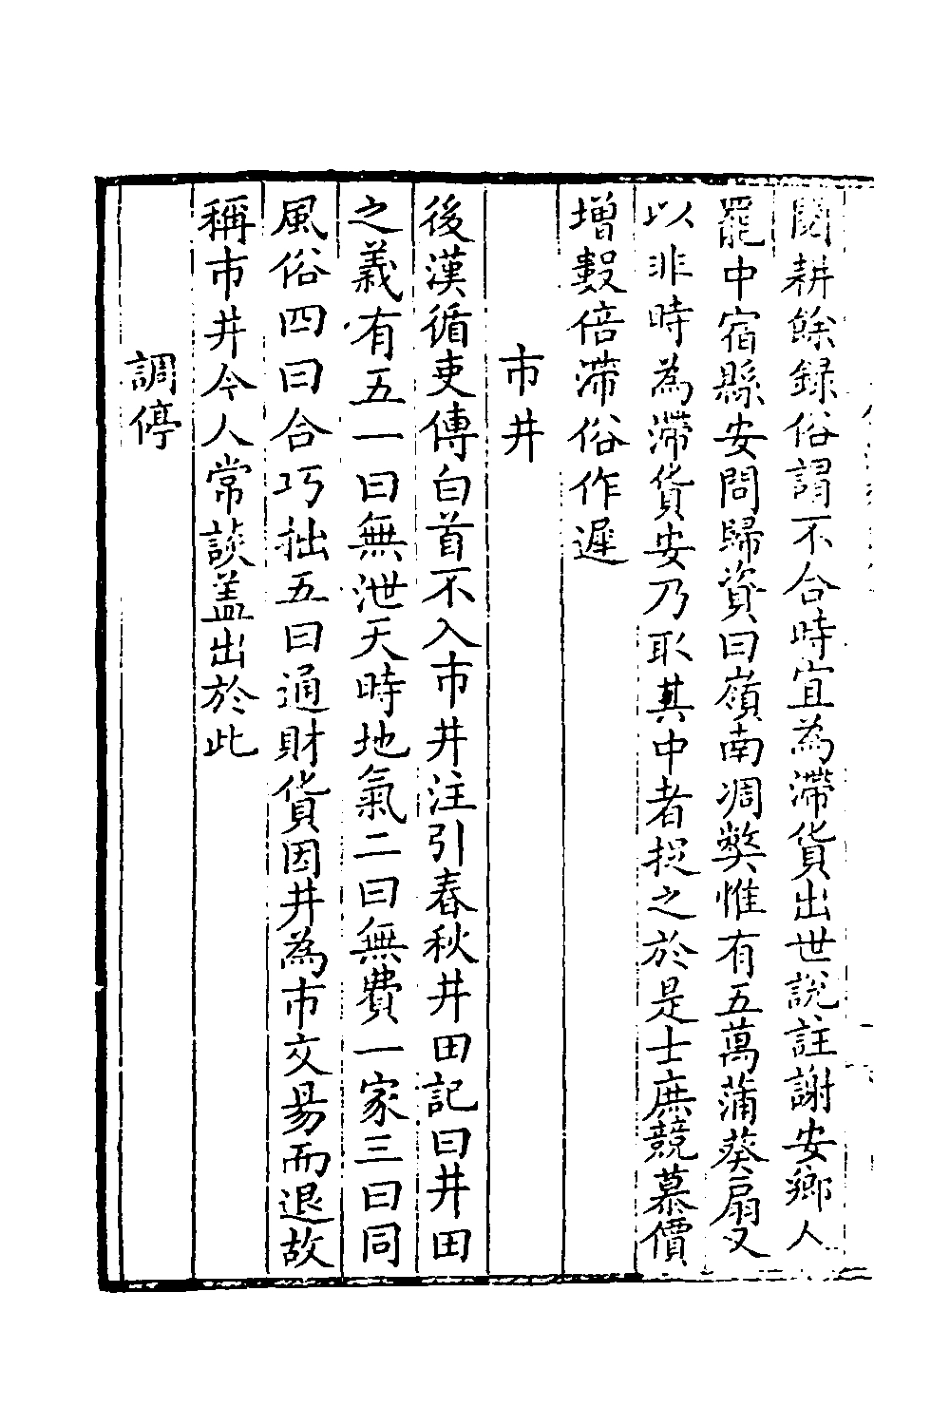 閱耕餘録俗謂不合時宜為滯貨出世說註謝安鄉人
罷中宿縣安問歸資曰嶺南凋弊惟有五萬蒲葵扇又
以非時為滯貨安乃取其中者捉之於是士庶競慕價
增數倍滯俗作遲
市井
後漢循吏傳白首不入市井注引春秋井田記曰井田
之義有五一曰無泄天時地氣二曰無費一家三曰同
風俗四曰合巧拙五曰通財貨因井為市交易而退故
稱市井今人常談盖出於此
調停